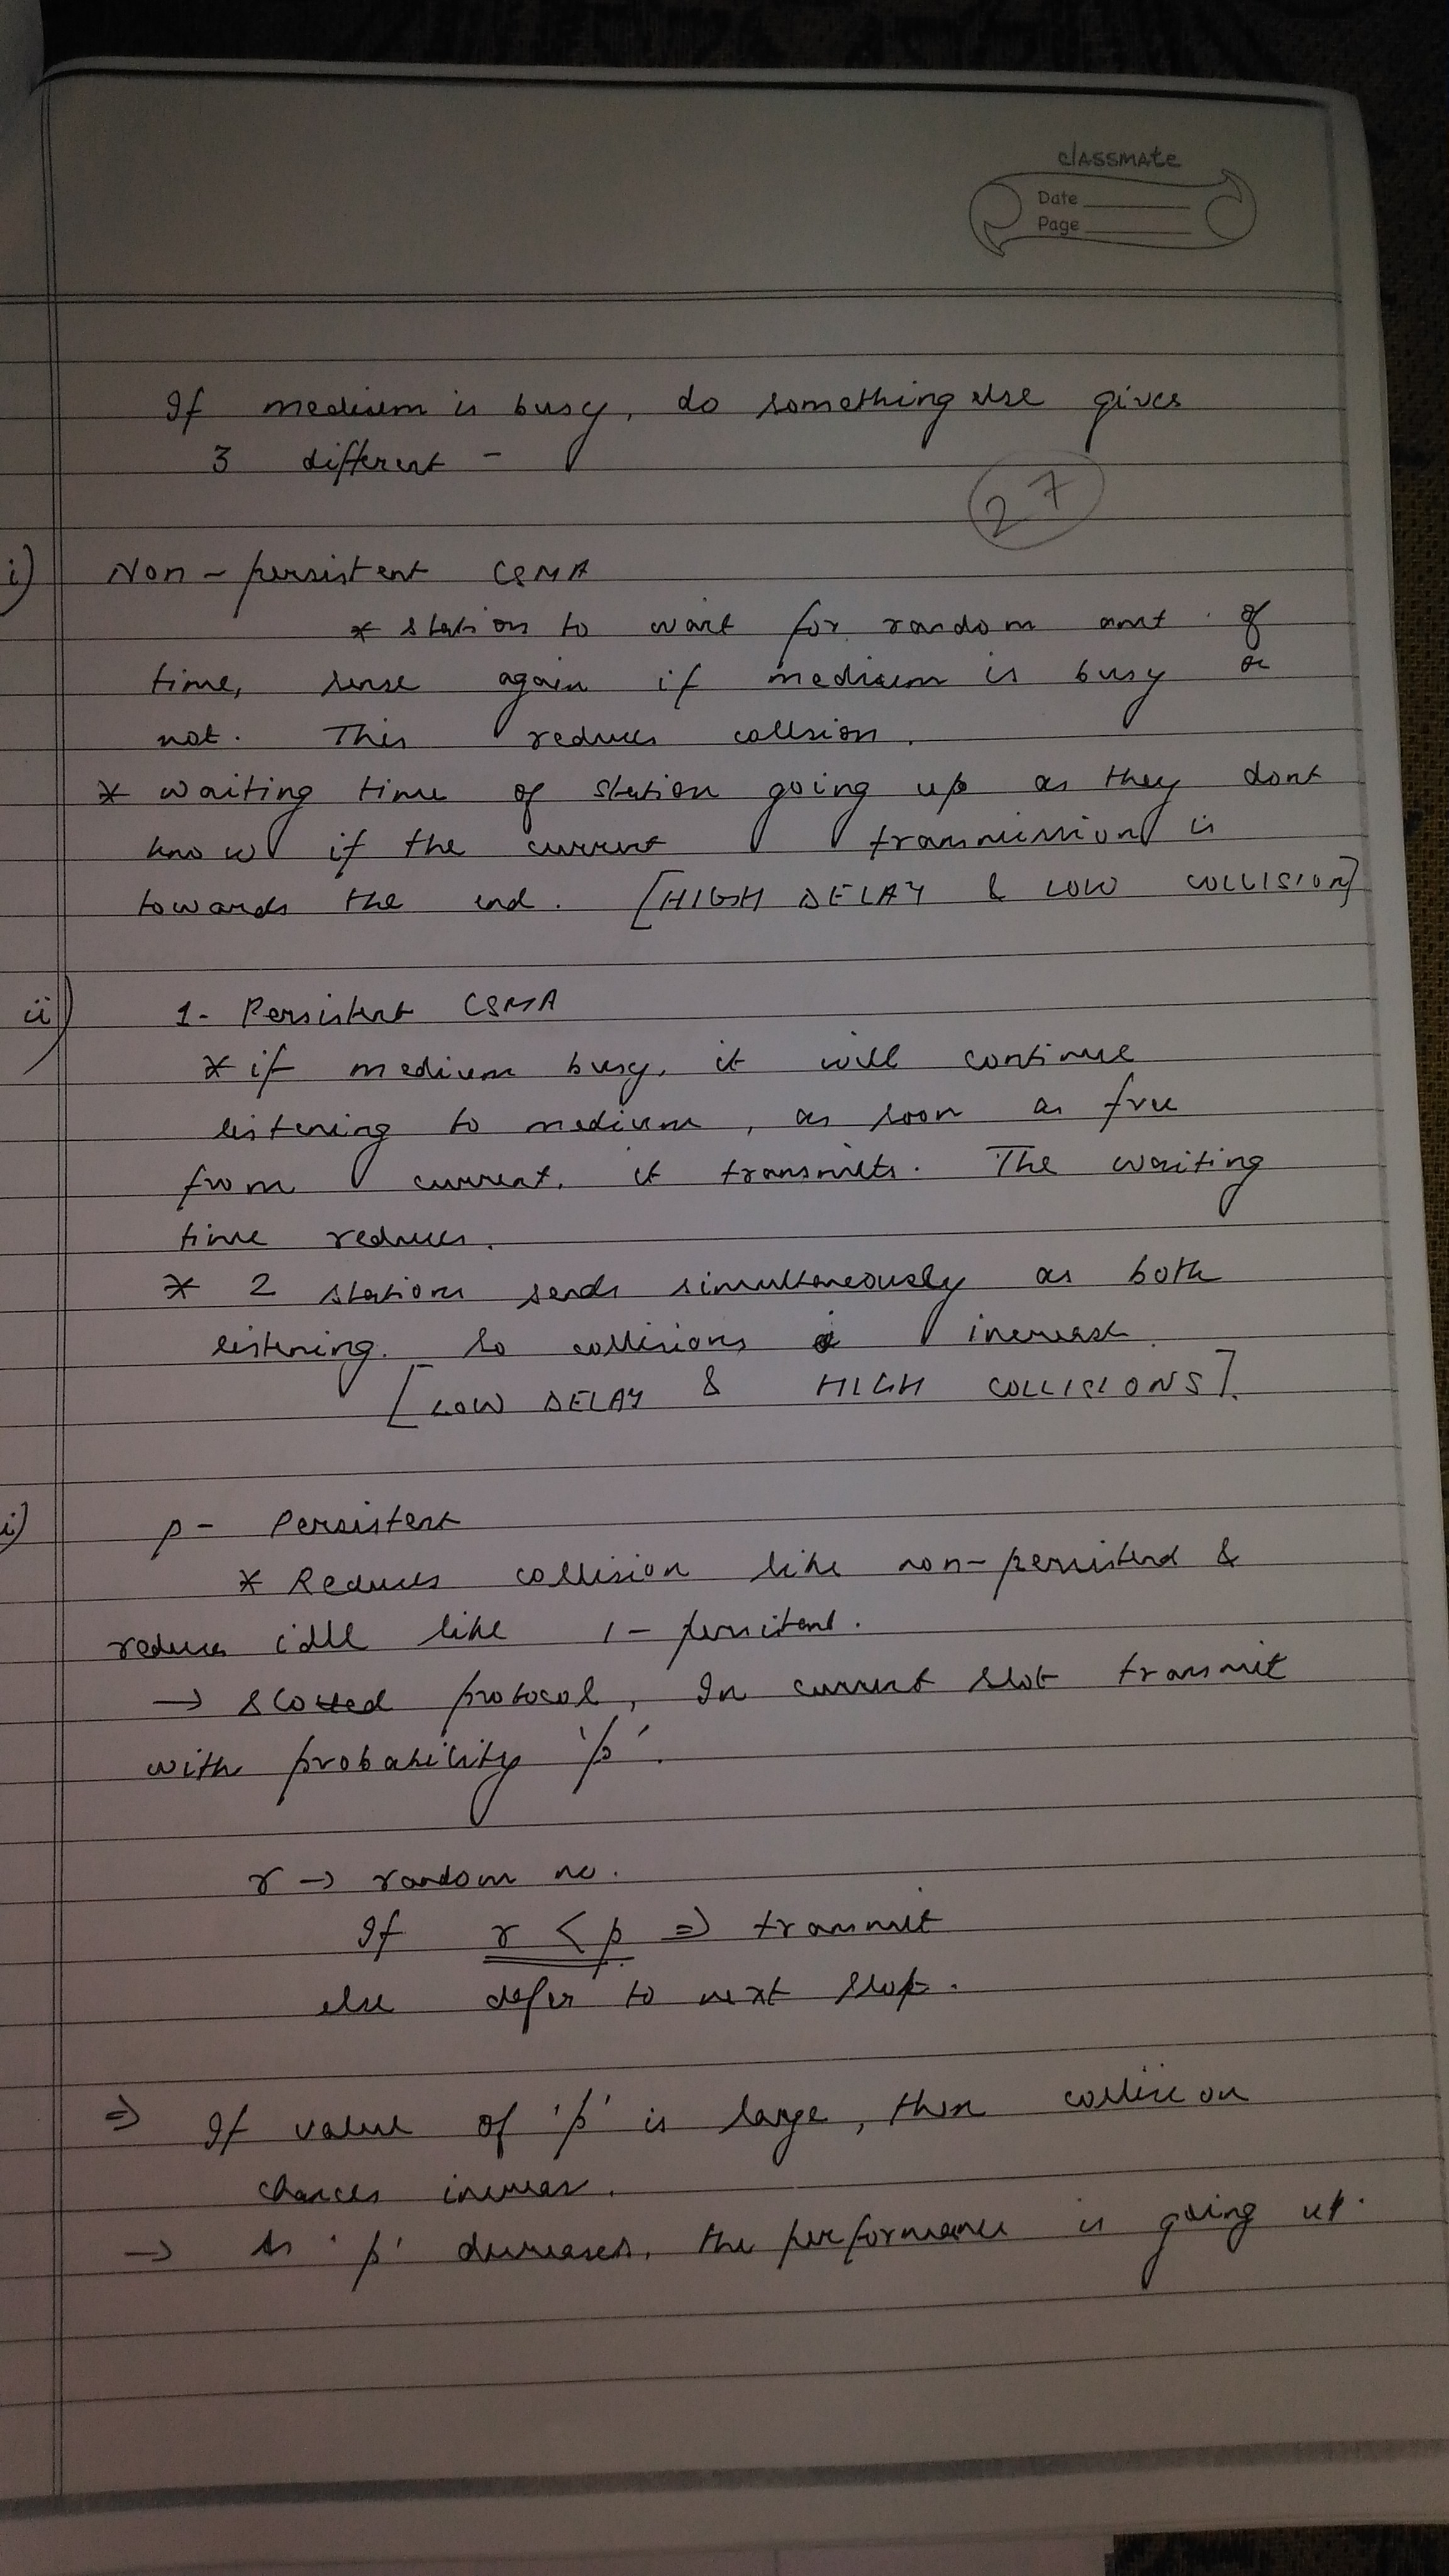 classmate
Date
Page
If medium is busy, do something else gives
3 different -
27
i) Non-persistent CSMA
* station to wait for random amt. of
time, sense again if medium is busy or
not. This reduces collision.
* waiting time of station going up as they dont
know if the current transmission is
towards the end. [HIGH DELAY & LOW COLLISION]
ii) 1- Persistent CSMA
* if medium busy, it will continue
listening to medium, as soon as free
from current, it transmits. The waiting
time reduces.
* 2 stations sends simultaneously as both
listening. So collisions increase.
[LOW DELAY & HIGH COLLISIONS].
i) p- Persistent
* Reduces collision like non-persistend &
reduces idle like 1-persitent.
→ slotted protocol, In current slot transmit
with probability 'p'.
r → random no.
If r < p => transmit
else defer to next slot.
=> If value of 'p' is large, then collision
chances increase.
→ As 'p' decreases, the performance is going up.